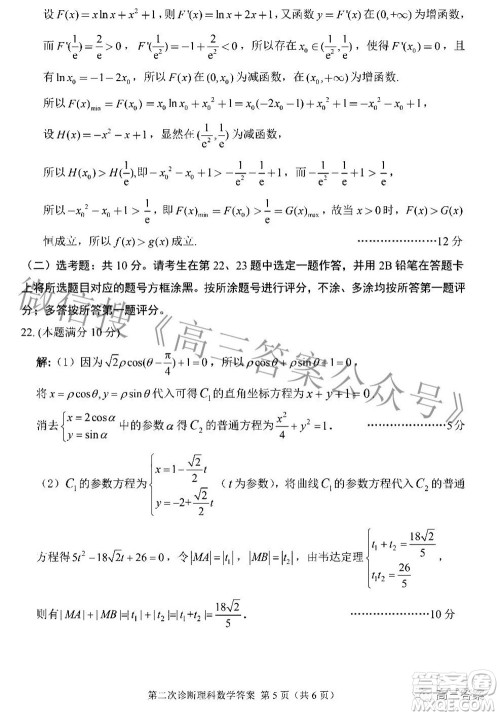 设 F(x)=x ln x+x²+1,则 F'(x)=ln x+2x+1,又函数 y=F'(x)在(0,+∞)为增函数,
而 F'(1/e)=2/e>0,F'(1/e²)=2/e²-1<0,所以存在 x₀∈(1/e²,1/e),使得 F'(x₀)=0,
有 ln x₀=-1-2x₀,所以 F(x)在(0,x₀)为减函数,在(x₀,+∞)为增函数.
所以 F(x)min=F(x₀)=x₀ ln x₀+x₀²+1=x₀(-2x₀-1)+x₀²+1=-x₀²-x₀+1,
设 H(x)=-x²-x+1,显然在(1/e²,1/e)为减函数,
所以 H(x₀)>H(1/e),即-x₀²-x₀+1>-1/e²-1/e+1>1/e
所以-x₀²-x₀+1>1/e,即 F(x)min=F(x₀)>1/e=G(x)max,故当 x>0时,F(x)>G(x)
恒成立,所以 f(x)>g(x)成立. …………………12分
(二)选考题:共 10 分。请考生在第 22、23 题中选定一题作答,并用 2B 铅笔在答题卡
上将所选题目对应的题号方框涂黑。按所涂题号进行评分,不涂、多涂均按所答第一题评
分;多答按所答第一题评分。
22.(本题满分 10 分)
解:(1)因为√2ρcos(θ-π/4)+1=0,所以ρcosθ+ρsinθ+1=0,
将 x=ρcosθ,y=ρsinθ代入可得 C₁的直角坐标方程为 x+y+1=0,
消去{x=2cosα y=sinα 中的参数α得 C₂的普通方程为 x²/4+y²=1. …………………5分
(2)C₁的参数方程为{x=1-√2/2 t y=-2+√2/2 t (t为参数),将曲线 C₁的参数方程代入 C₂的普通
方程得 5t²-18√2t+26=0,令|MA|=|t₁|,|MB|=|t₂|,由韦达定理{t₁+t₂=18√2/5 t₁t₂=26/5,
则有|MA|+|MB|=|t₁|+|t₂|=|t₁+t₂|=18√2/5. …………………10分
第二次诊断理科数学答案 第 5 页(共 6 页)
微信搜《高三答案公众号》
高三答案